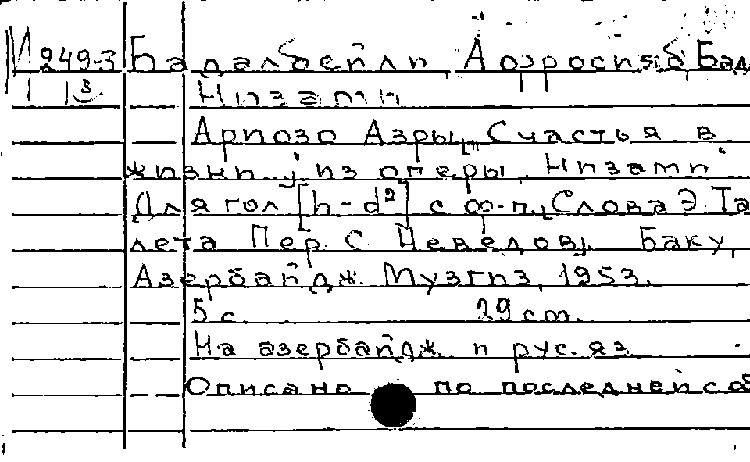 М 249-3 Бадалбейли, Афрасияб Бад
1 3 Низами
Ариозо Азры „Счастья в
жизни" из оперы „Низами"
Для гол [h-d²] с ф-п. Слова Э. Та
лета Пер. С Неведов. Баку,
Азербайдж. Музгиз, 1953.
5 с. 29 cm.
На азербайдж. и рус. яз
Описано по последней с